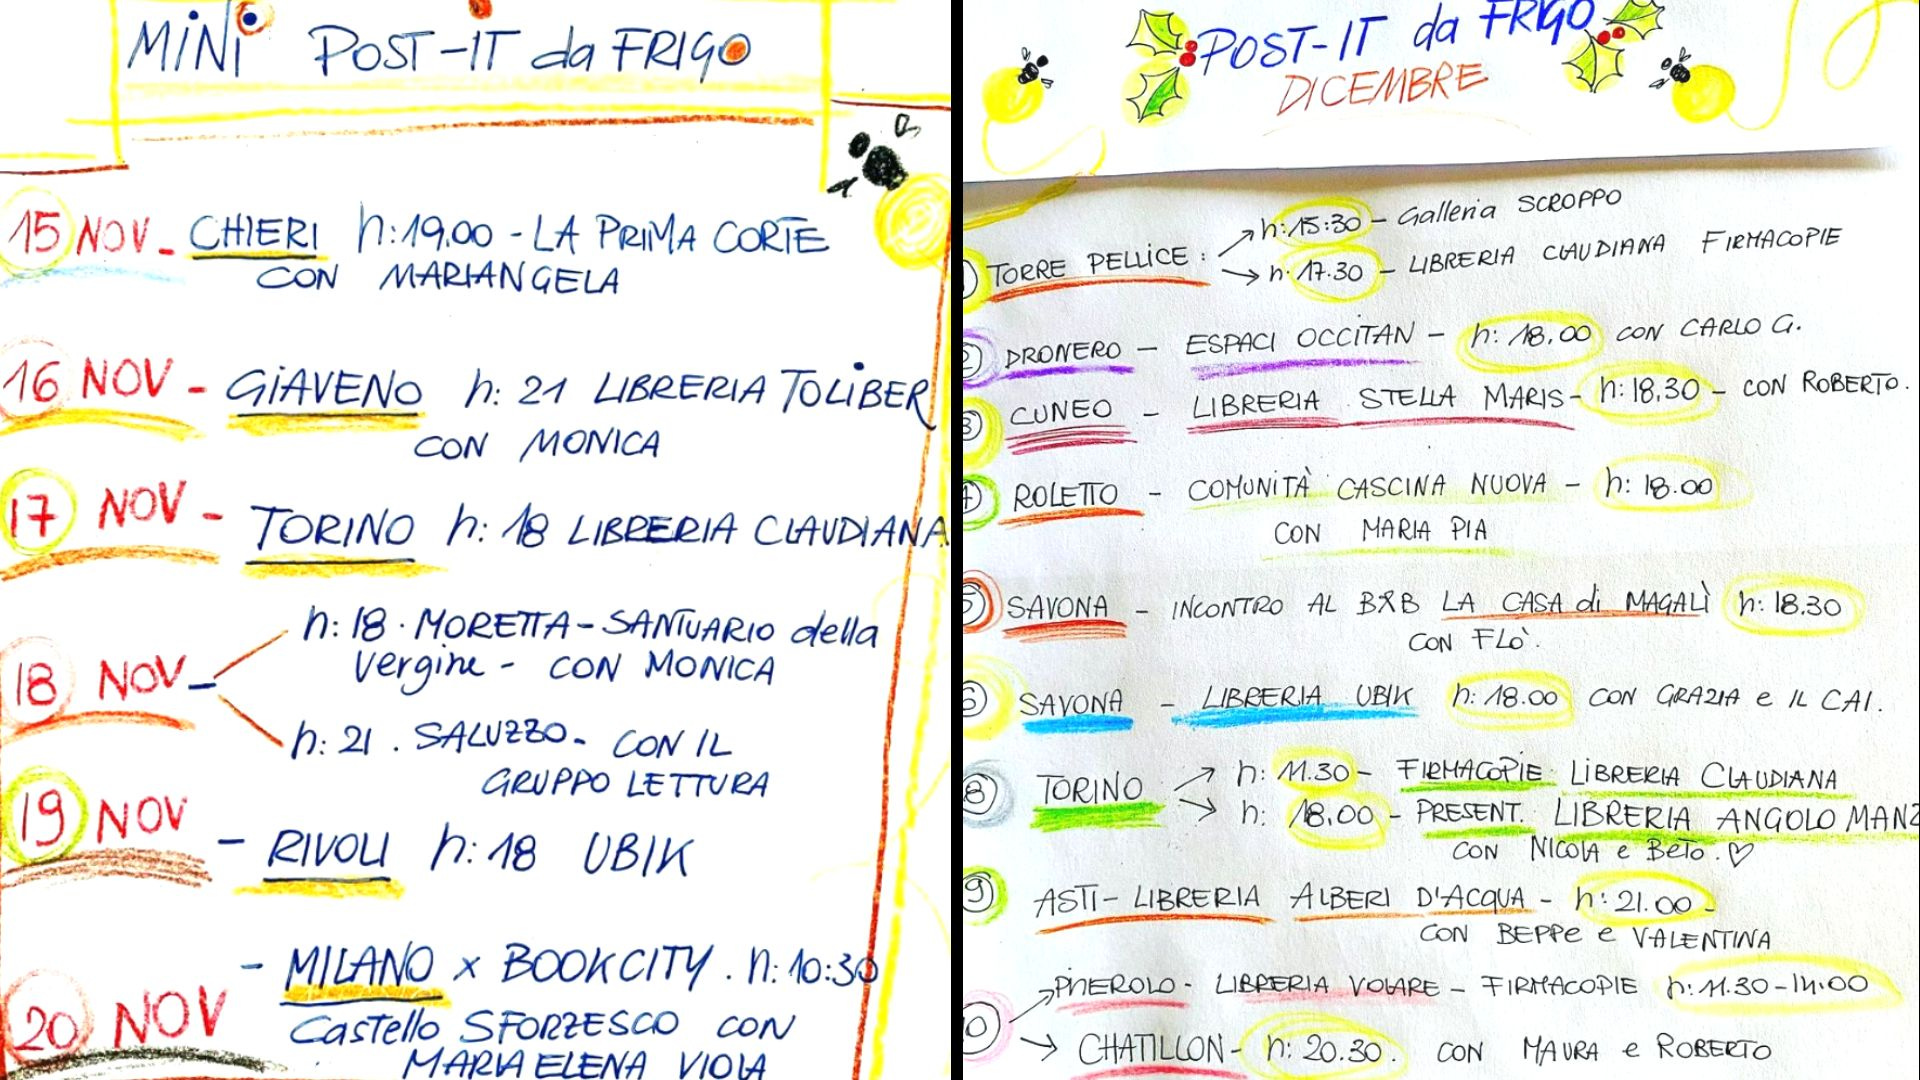 MINI POST-IT da FRIGO
15 NOV - CHIERI h:19.00 - LA PRIMA CORTE
CON MARIANGELA
16 NOV - GIAVENO h: 21 LIBRERIA TOLIBER
CON MONICA
17 NOV - TORINO h: 18 LIBRERIA CLAUDIANA
18 NOV - h: 18 · MORETTA - SANTUARIO della
Vergine - CON MONICA
h: 21 . SALUZZO - CON IL
GRUPPO LETTURA
19 NOV - RIVOLI h: 18 UBIK
20 NOV - MILANO x BOOKCITY . h: 10:30
Castello SFORZESCO CON
MARIA ELENA VIOLA
POST-IT da FRIGO
DICEMBRE
TORRE PELLICE : h: 15:30 - Galleria SCROPPO
h. 17.30 - LIBRERIA CLAUDIANA FIRMACOPIE
2 DRONERO - ESPACI OCCITAN - h: 18.00 CON CARLO G.
3 CUNEO - LIBRERIA STELLA MARIS - h: 18.30 - CON ROBERTO.
4 ROLETTO - COMUNITÀ CASCINA NUOVA - h: 18.00
CON MARIA PIA
5 SAVONA - INCONTRO AL B&B LA CASA di MAGALÌ h: 18.30
CON FLÒ.
6 SAVONA - LIBRERIA UBIK h: 18.00 CON GRAZIA e IL CAI.
8 TORINO h: 11.30 - FIRMACOPIE LIBRERIA CLAUDIANA
h: 18.00 - PRESENT. LIBRERIA ANGOLO MANZ
CON NICOLA e BETO. ♡
9 ASTI - LIBRERIA ALBERI D'ACQUA - h: 21.00 -
CON BEPPE e VALENTINA
0 PINEROLO - LIBRERIA VOLARE - FIRMACOPIE h: 11.30 - 14:00
CHATILLON - h: 20.30. CON MAURA e ROBERTO